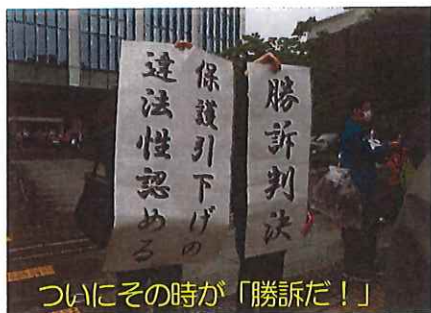 勝訴判決
保護引下げの
違法性認める
ついにその時が「勝訴だ！」